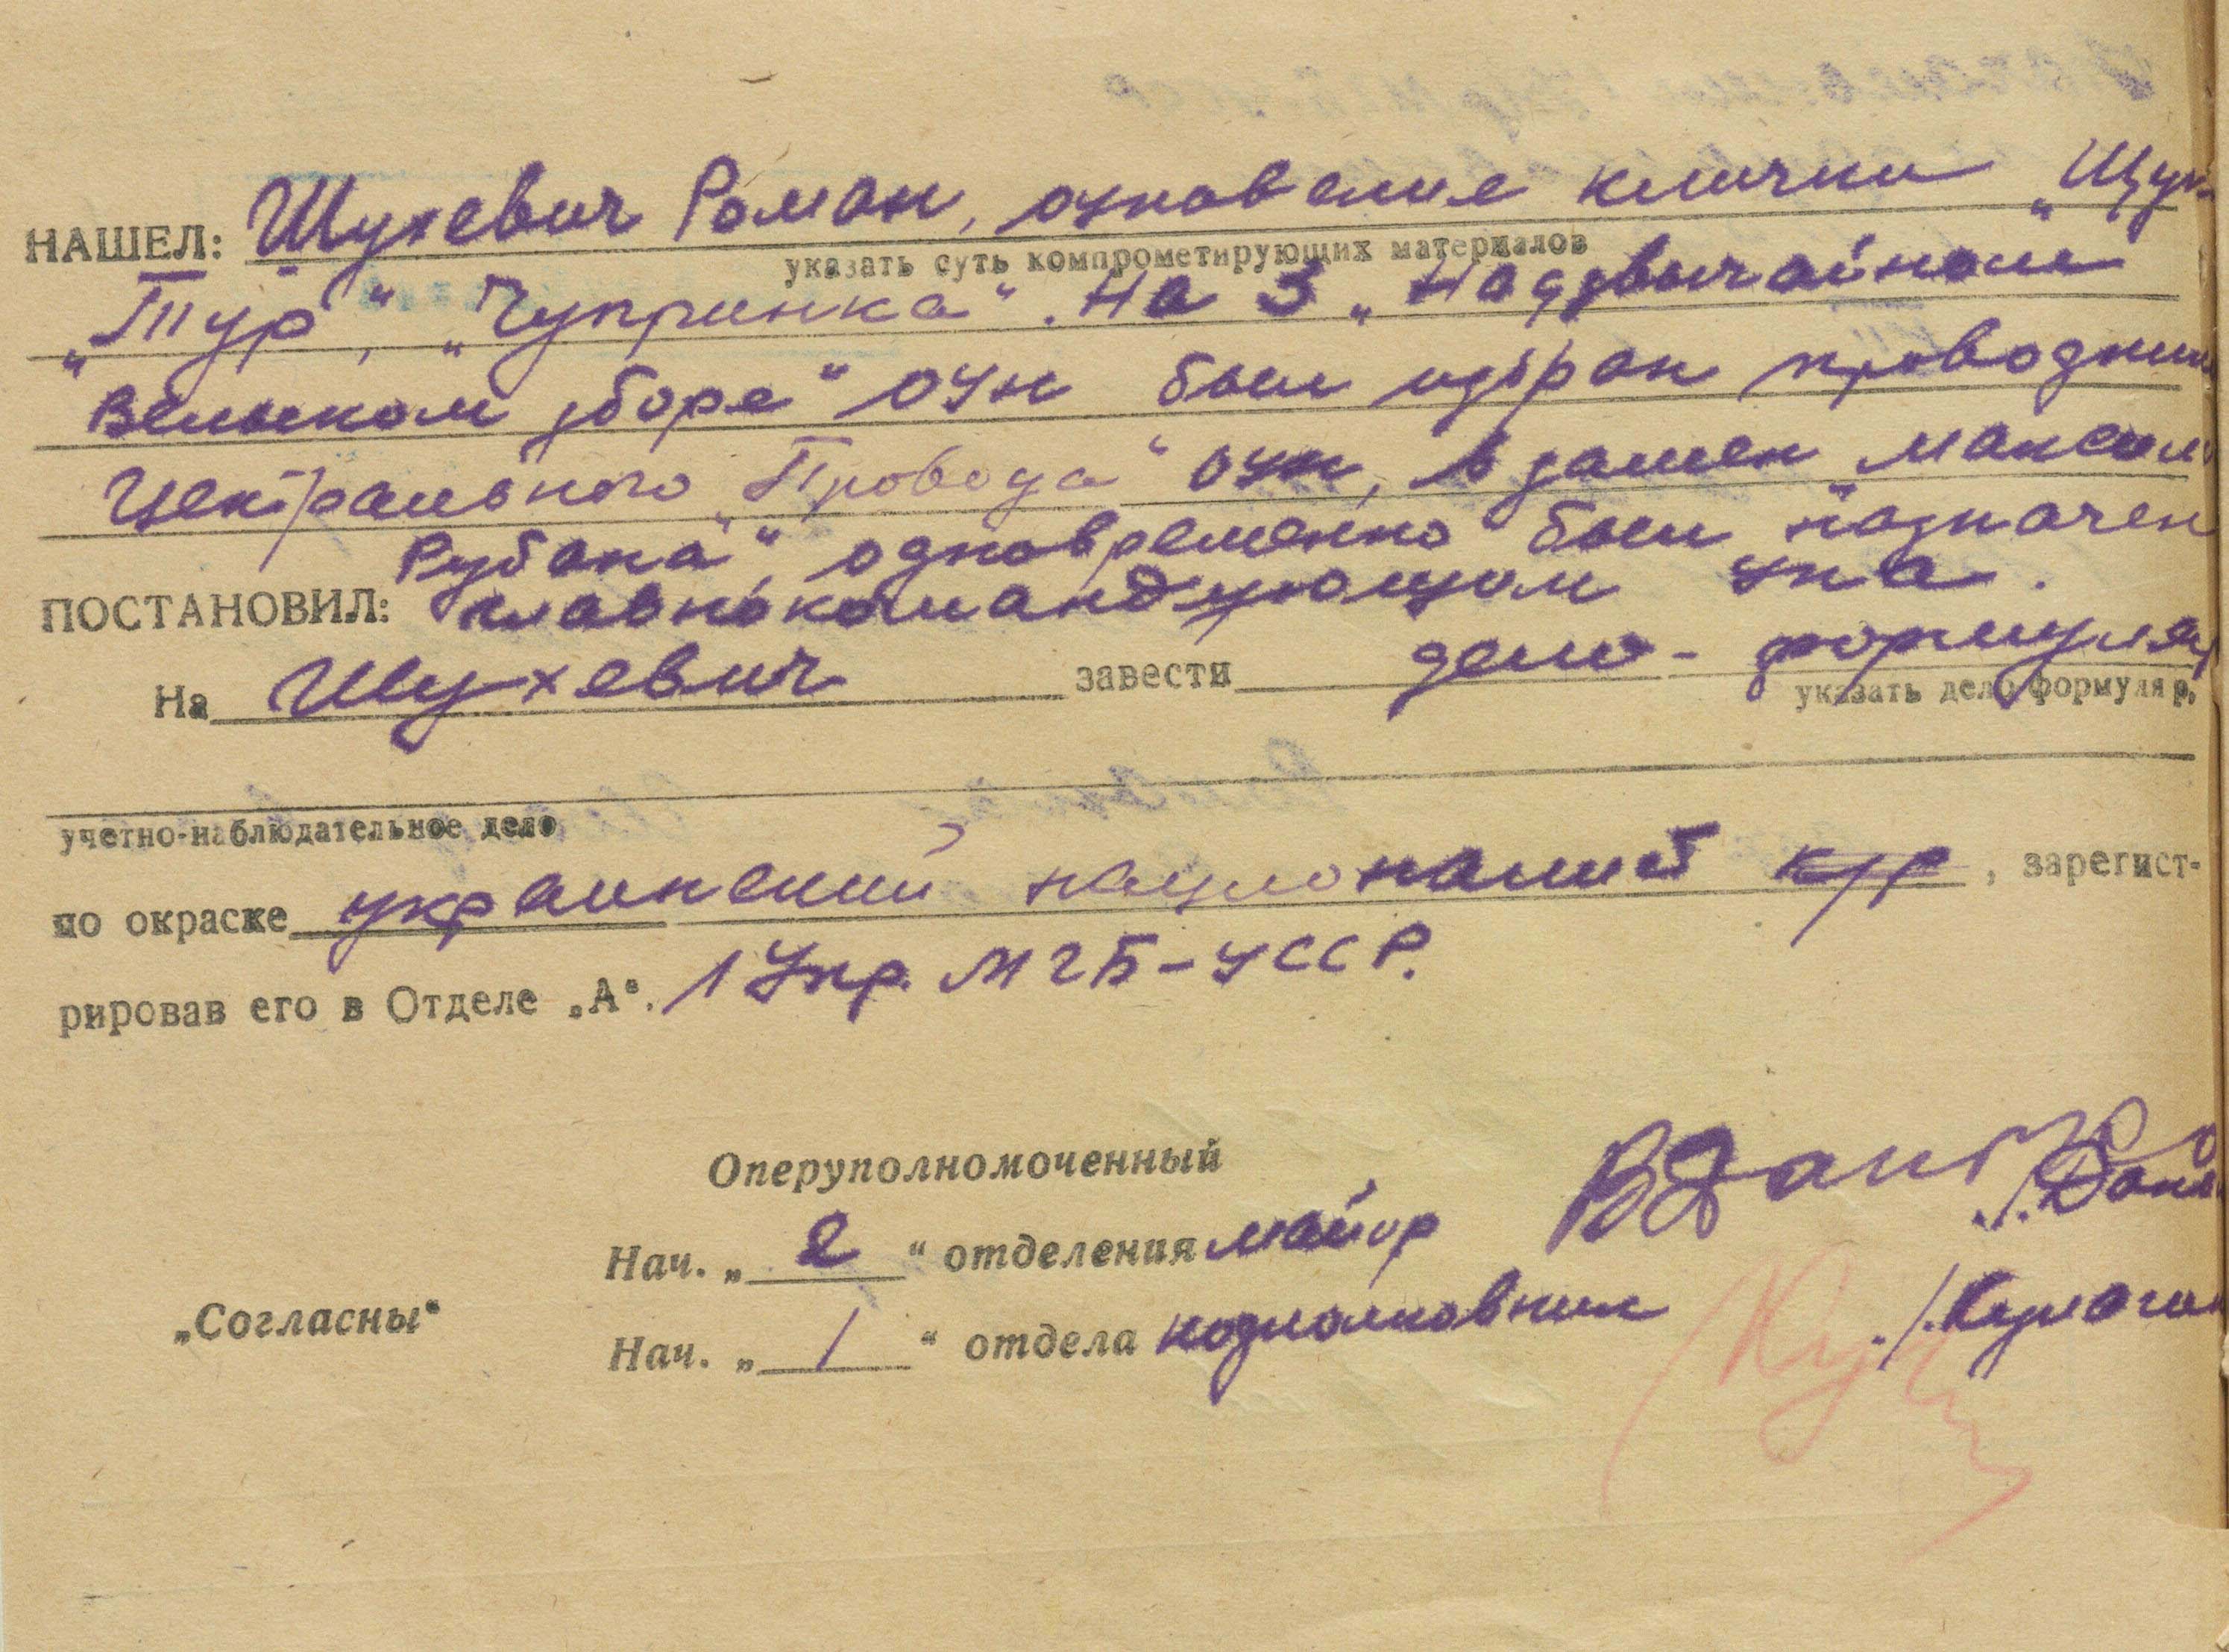 НАШЕЛ: Шухевич Роман, оуновские клички „Щук
указать суть компрометирующих материалов
„Тур", „Чупринка". На 3 „Надзвычайном
Велыком зборе" ОУН был избран проводник
Центрального „Провода" ОУН, взамен „Максима
Рубана", одновременно был назначен
ПОСТАНОВИЛ: главнокомандующом УПА.
На Шухевич завести дело-формуляр
указать дело формуляр,
учетно-наблюдательное дело
по окраске украинский националист к/р, зарегист-
рировав его в Отделе „А". 1 Упр. МГБ-УССР.
Оперуполномоченный
Нач. „2" отделения майор
„Согласны"
Нач. „1" отдела подполковник